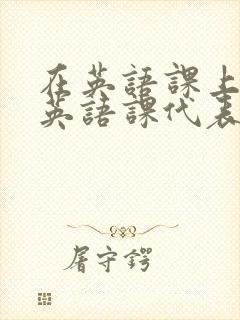 在英語課上
英語課代表
屠守鍔